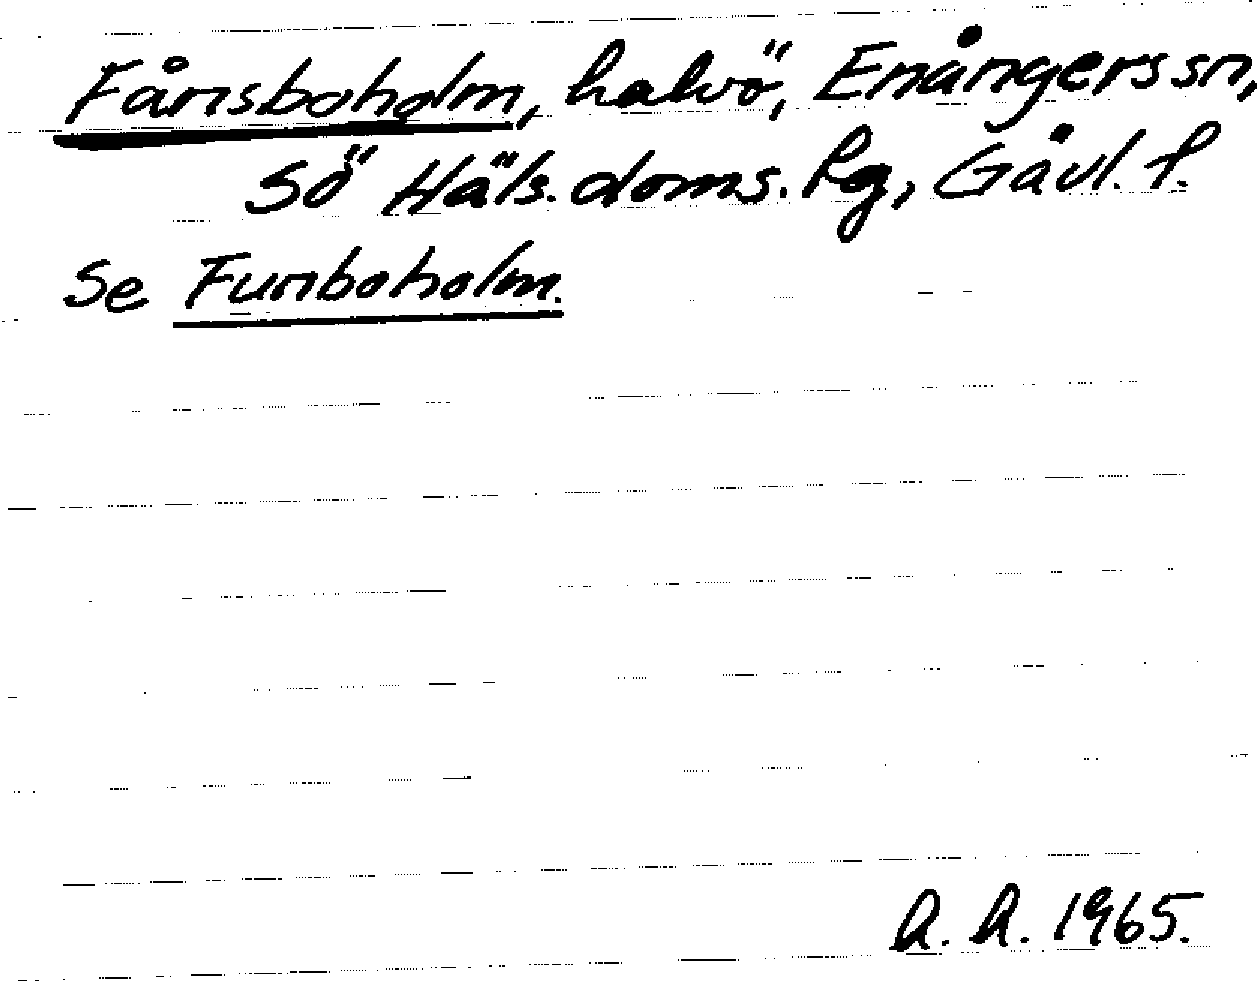 Fånsboholm, halvö, Enångers sn,
Sö Häls. doms. lg, Gävl. l.
Se Funboholm.
A. A. 1965.